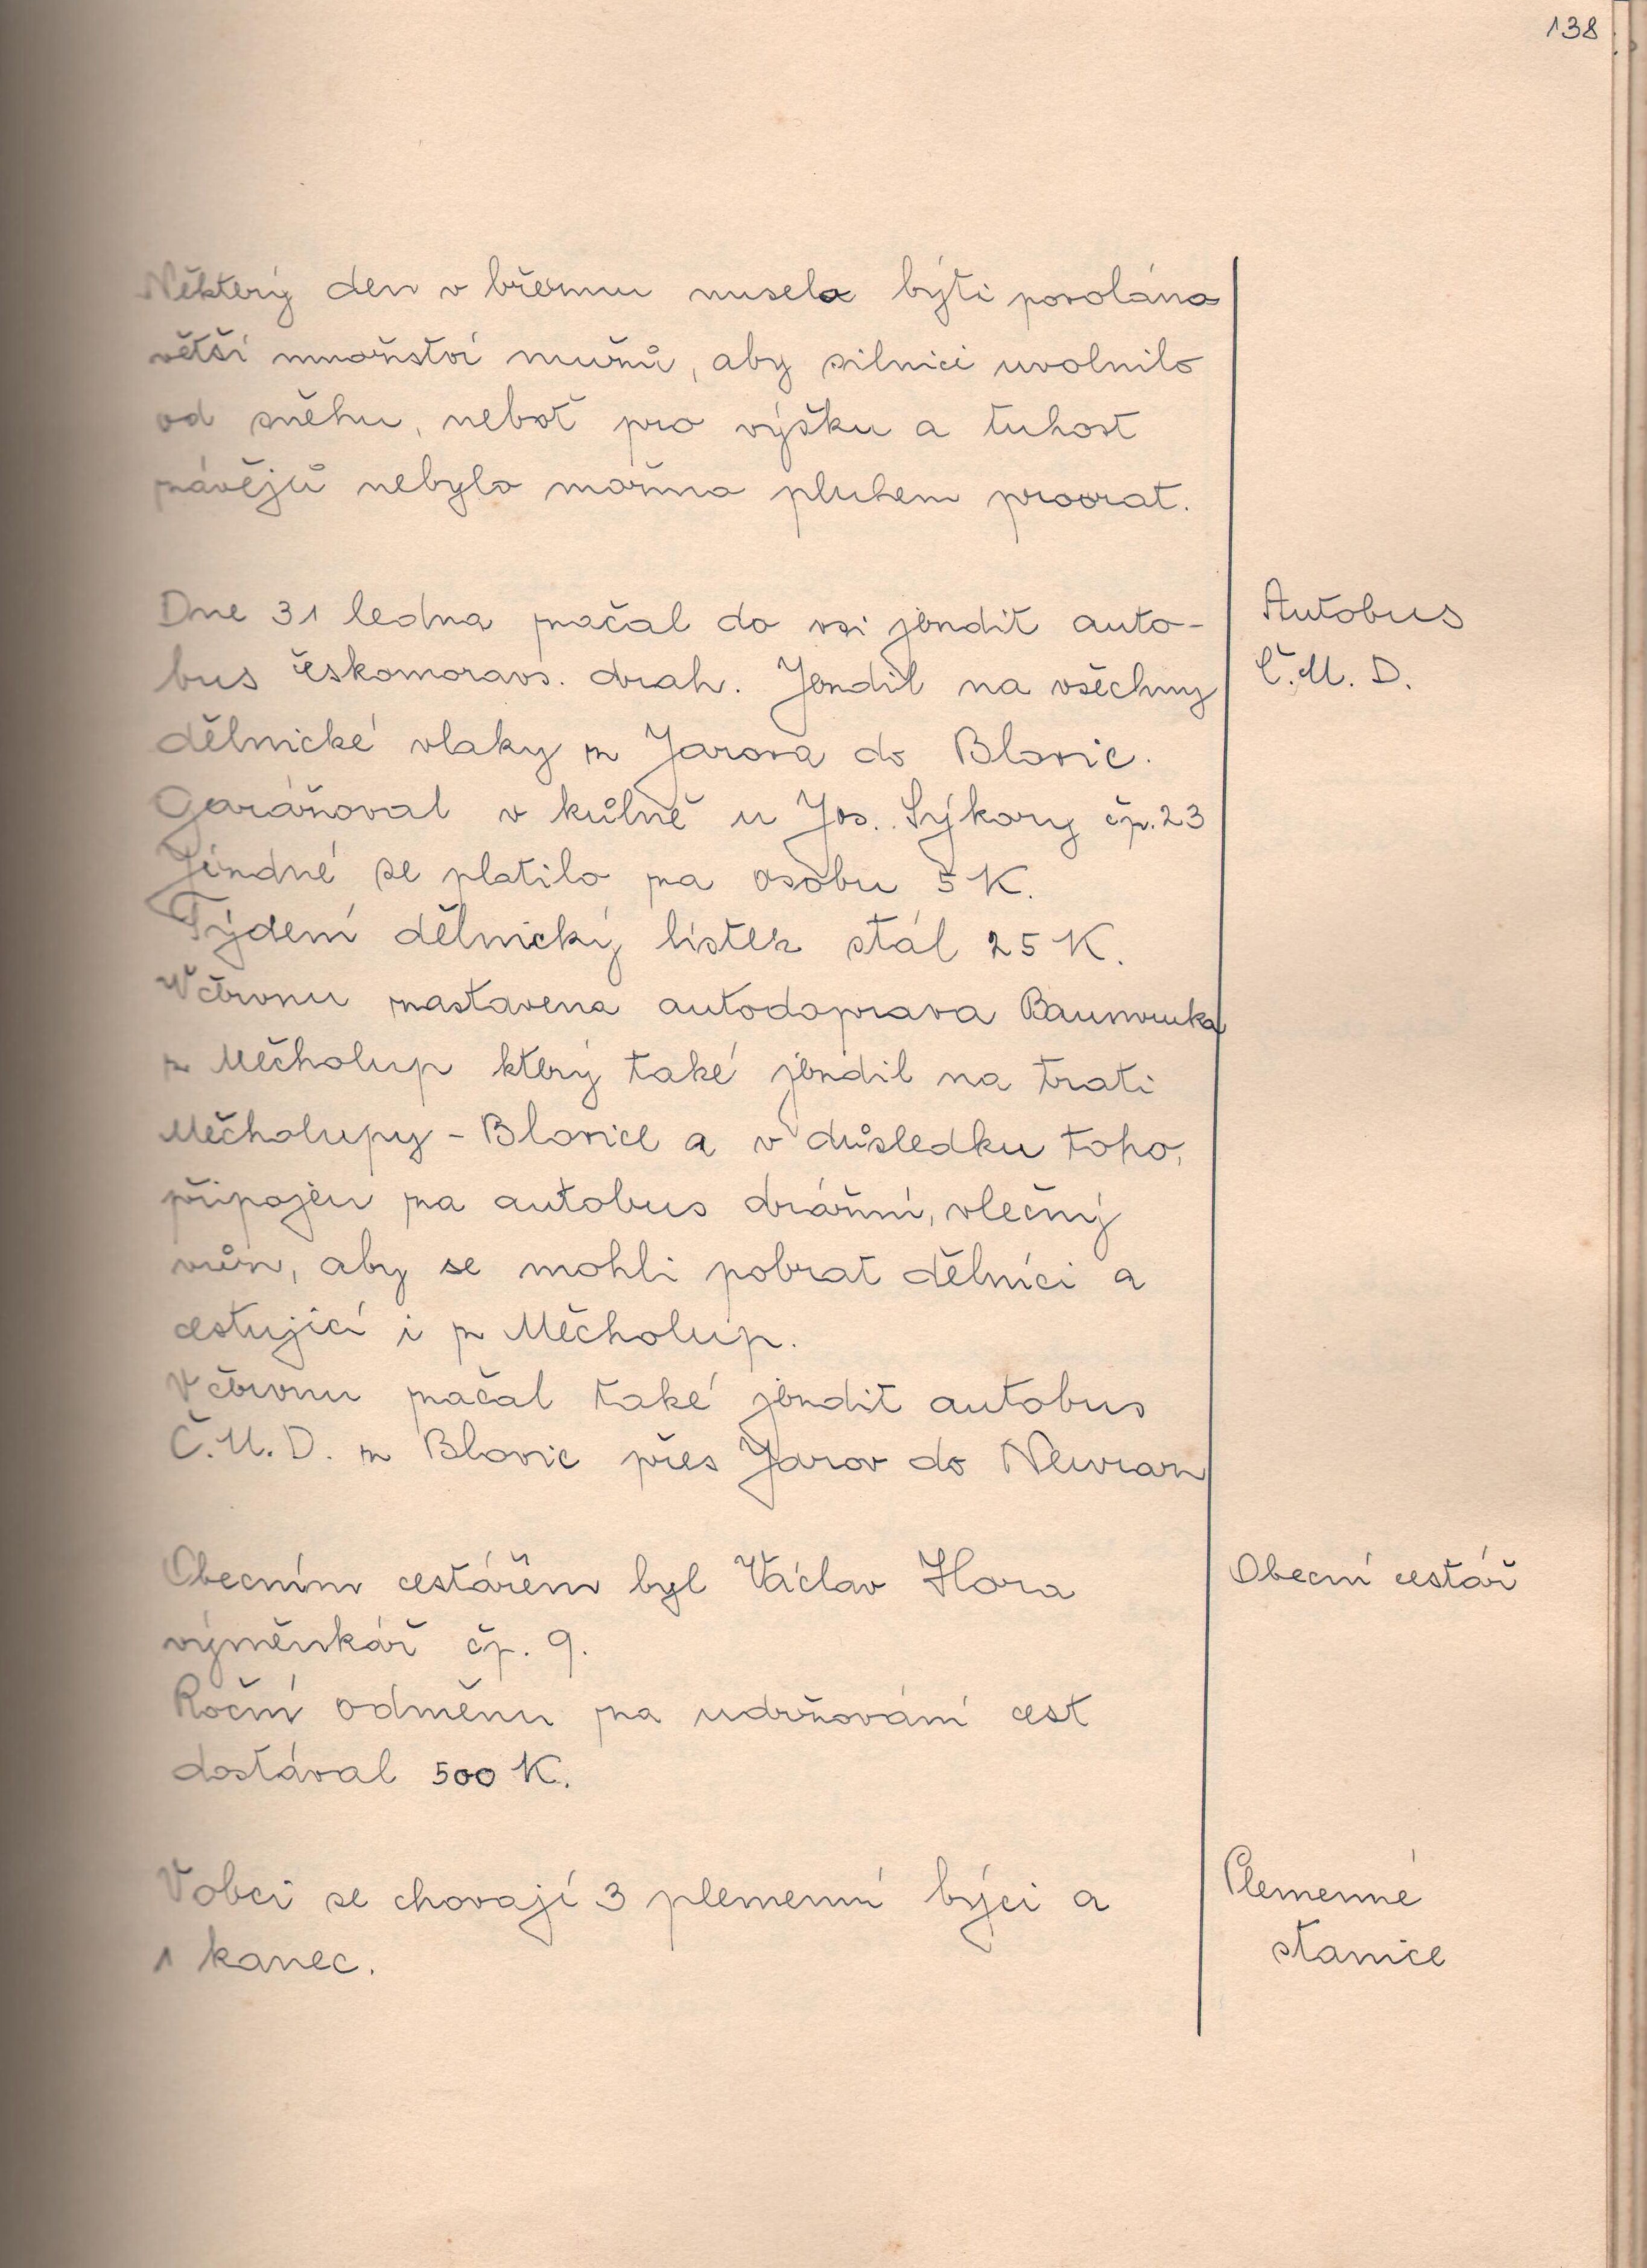 138
Některý den v březnu musela býti povolána
větší množství mužů, aby silnici uvolnilo
od sněhu, neboť pro výšku a tuhost
závějů nebylo možno pluhem proorat.
Dne 31 ledna začal do vsi jezdit auto-
Autobus
bus českomoravs. drah. Jezdil na všechny
Č.M.D.
dělnické vlaky z Jarova do Blovic.
Garážoval v kůlně u Jos. Sýkory čp. 23
Jízdné se platilo za osobu 5 K.
Týdení dělnický lístek stál 25 K.
V červnu zastavena autodoprava Baumruka
z Měcholup který také jezdil na trati
Měcholupy - Blovice a v důsledku toho,
připojen za autobus drážní, vlečný
vůz, aby se mohli pobrat dělníci a
cestující i z Měcholup.
V červnu začal také jezdit autobus
Č.M.D. z Blovic přes Jarov do Neuraz
Obecním cestářem byl Václav Hora
Obecní cestář
výměnkář čp. 9.
Roční odměnu za udržování cest
dostával 500 K.
V obci se chovají 3 plemenní býci a
Plemenné
1 kanec.
stanice